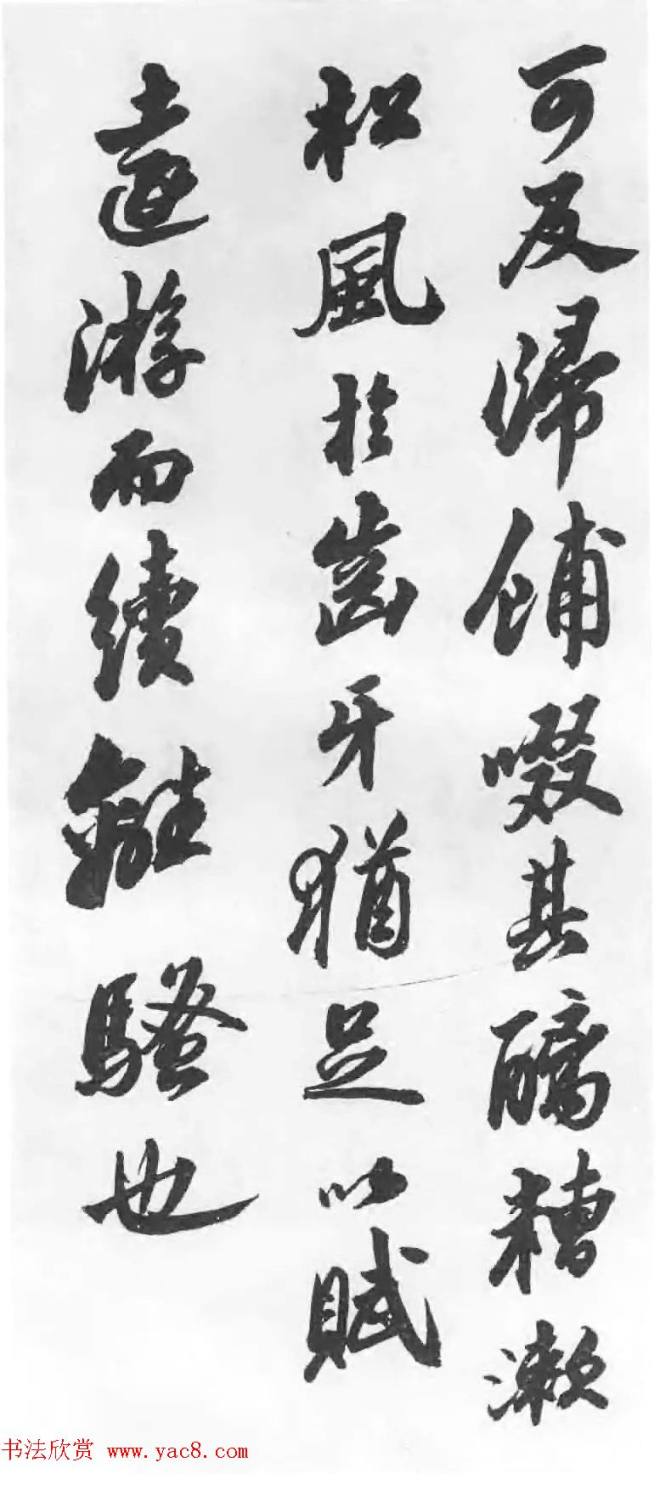 可及歸餔啜其醨糟漱
松風於齒牙猶足以賦
遠游而續離騷也
书法欣赏 www.yac8.com